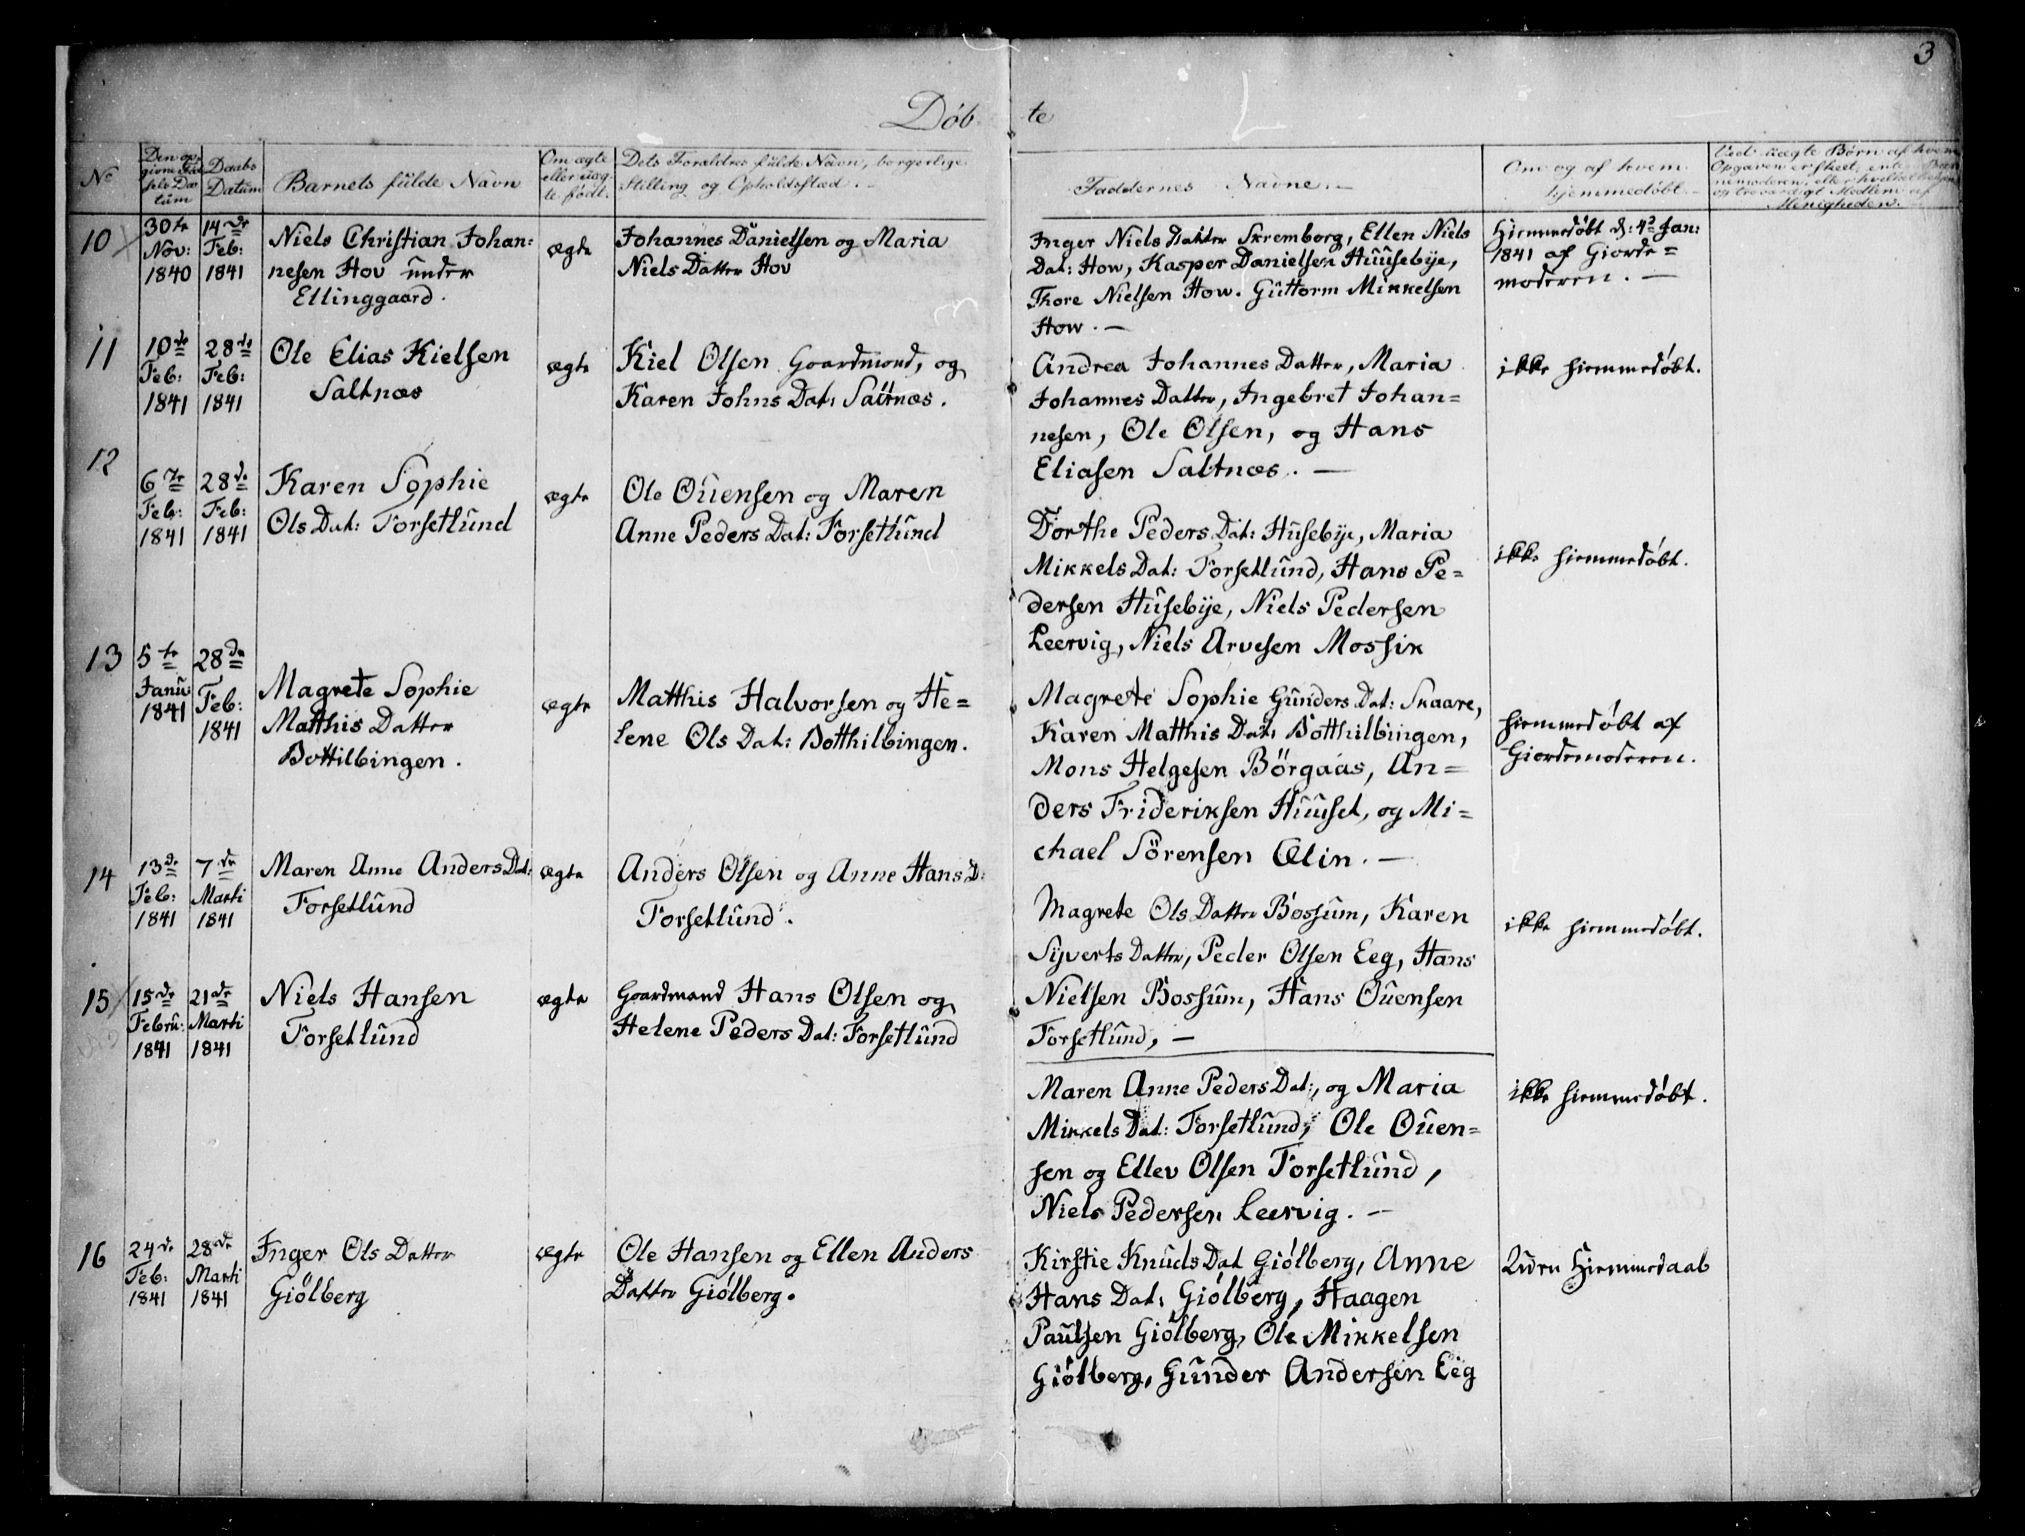 3
Döbte
No
Den opgivne Fødsels Datum
Daabs Datum
Barnets fulde Navn
Om ægte eller uægte født.
Dets Forældres fulde Navn, borgerlige Stilling og Opholdsstæd.
Faddernes Navne.
Om og af hvem hjemmedøbt.
10
30te
Nov:
1840
14de
Feb:
1841
Niels Christian Johan:
nesen Hov under
Ellinggaard.
ægte
Johannes Danielsen og Maria
Niels Datter Hov
Inger Niels Datter Skremborg, Ellen Niels
Dat: How, Kasper Danielsen Huusebye,
Thore Nielsen How. Guttorm Mikkelsen
How. —
Hiemmedøbt d: 4de Jan:
1841 af Giorde=
moderen. —
11
10de
Feb:
1841
28de
Feb:
1841
Ole Elias Kielsen
Saltnæs
ægte
Kiel Olsen Goardmond, og
Karen Johns Dat: Saltnæs.
Andrea Johannes Datter, Maria
Johannes Datter, Ingebret Johan=
nesen, Ole Olsen, og Hans
Eliasen Saltnæs. —
ikke hiemmedøbt.
12
6te
Feb:
1841
28de
Feb:
1841
Karen Sophie
Ols Dat: Forsetlund
ægte
Ole Ouensen og Maren
Anne Peders Dat: Forsetlund
Dorthe Peders Dat: Husebye, Maria
Mikkels Dat: Forsetlund, Hans Pe=
dersen Husebye, Niels Pedersen
Leervig, Niels Arvesen Mossik
ikke hiemmedøbt.
13
5te
Janu
1841
28de
Feb:
1841
Magrete Sophie
Matthis Datter
Bottilbingen.
ægte
Matthis Halvorsen og He=
lene Ols Dat: Botthilbingen.
Magrete Sophie Gunders Dat: Skaare,
Karen Matthis Dat: Botthilbingen,
Mons Helgesen Börgaas, An=
ders Frideriksen Huuset, og Mi=
chael Sörensen Ælin. —
hiemmedøbt af
Giordemoderen.
14
13de
Feb:
1841
7de
Marti
1841
Maren Anne Anders Dat:
Forsetlund
ægte
Anders Olsen og Anne Hans D:
Forsetlund.
Magrete Ols Datter Bossum, Karen
Syverts Datter, Peder Olsen Eeg, Hans
Nielsen Bossum, Hans Ouensen
Forsetlund, —
ikke hiemmedøbt.
15
15de
Febru:
1841
21de
Marti
1841
Niels Hansen
Forsetlund
ægte
Goardmand Hans Olsen og
Helene Peders Dat: Forsetlund
Maren Anne Peders Dat:, og Maria
Mikkels Dat: Forsetlund, Ole Ouen=
sen og Ellev Olsen Forsetlund,
Niels Pedersen Leervig. —
ikke hiemmedøbt.
16
24de
Feb:
1841
28de
Marti
1841
Inger Ols Datter
Giölberg
ægte
Ole Hansen og Ellen Anders
Datter Giölberg.
Kirstie Knuds Dat Giölberg, Anne
Hans Dat: Giölberg, Haagen
Paulsen Giölberg, Ole Mikkelsen
Giölberg, Gunder Andersen Eeg
Uden Hiemmedaab